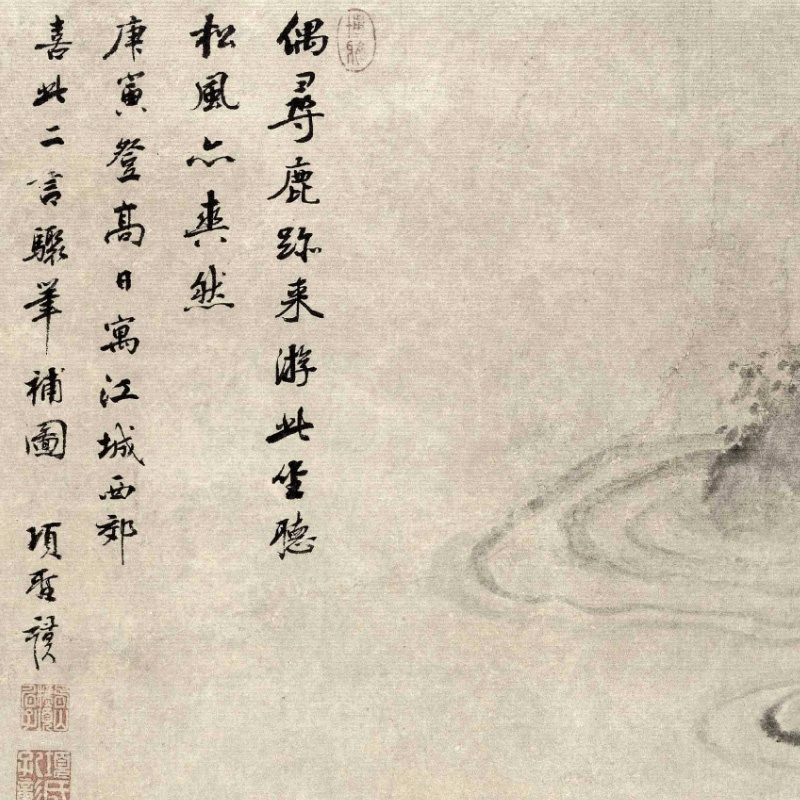 偶尋鹿跡來游此坐聽
松風亦爽然
庚寅登高日寓江城西郊
喜此二言驟筆補圖 項聖謨